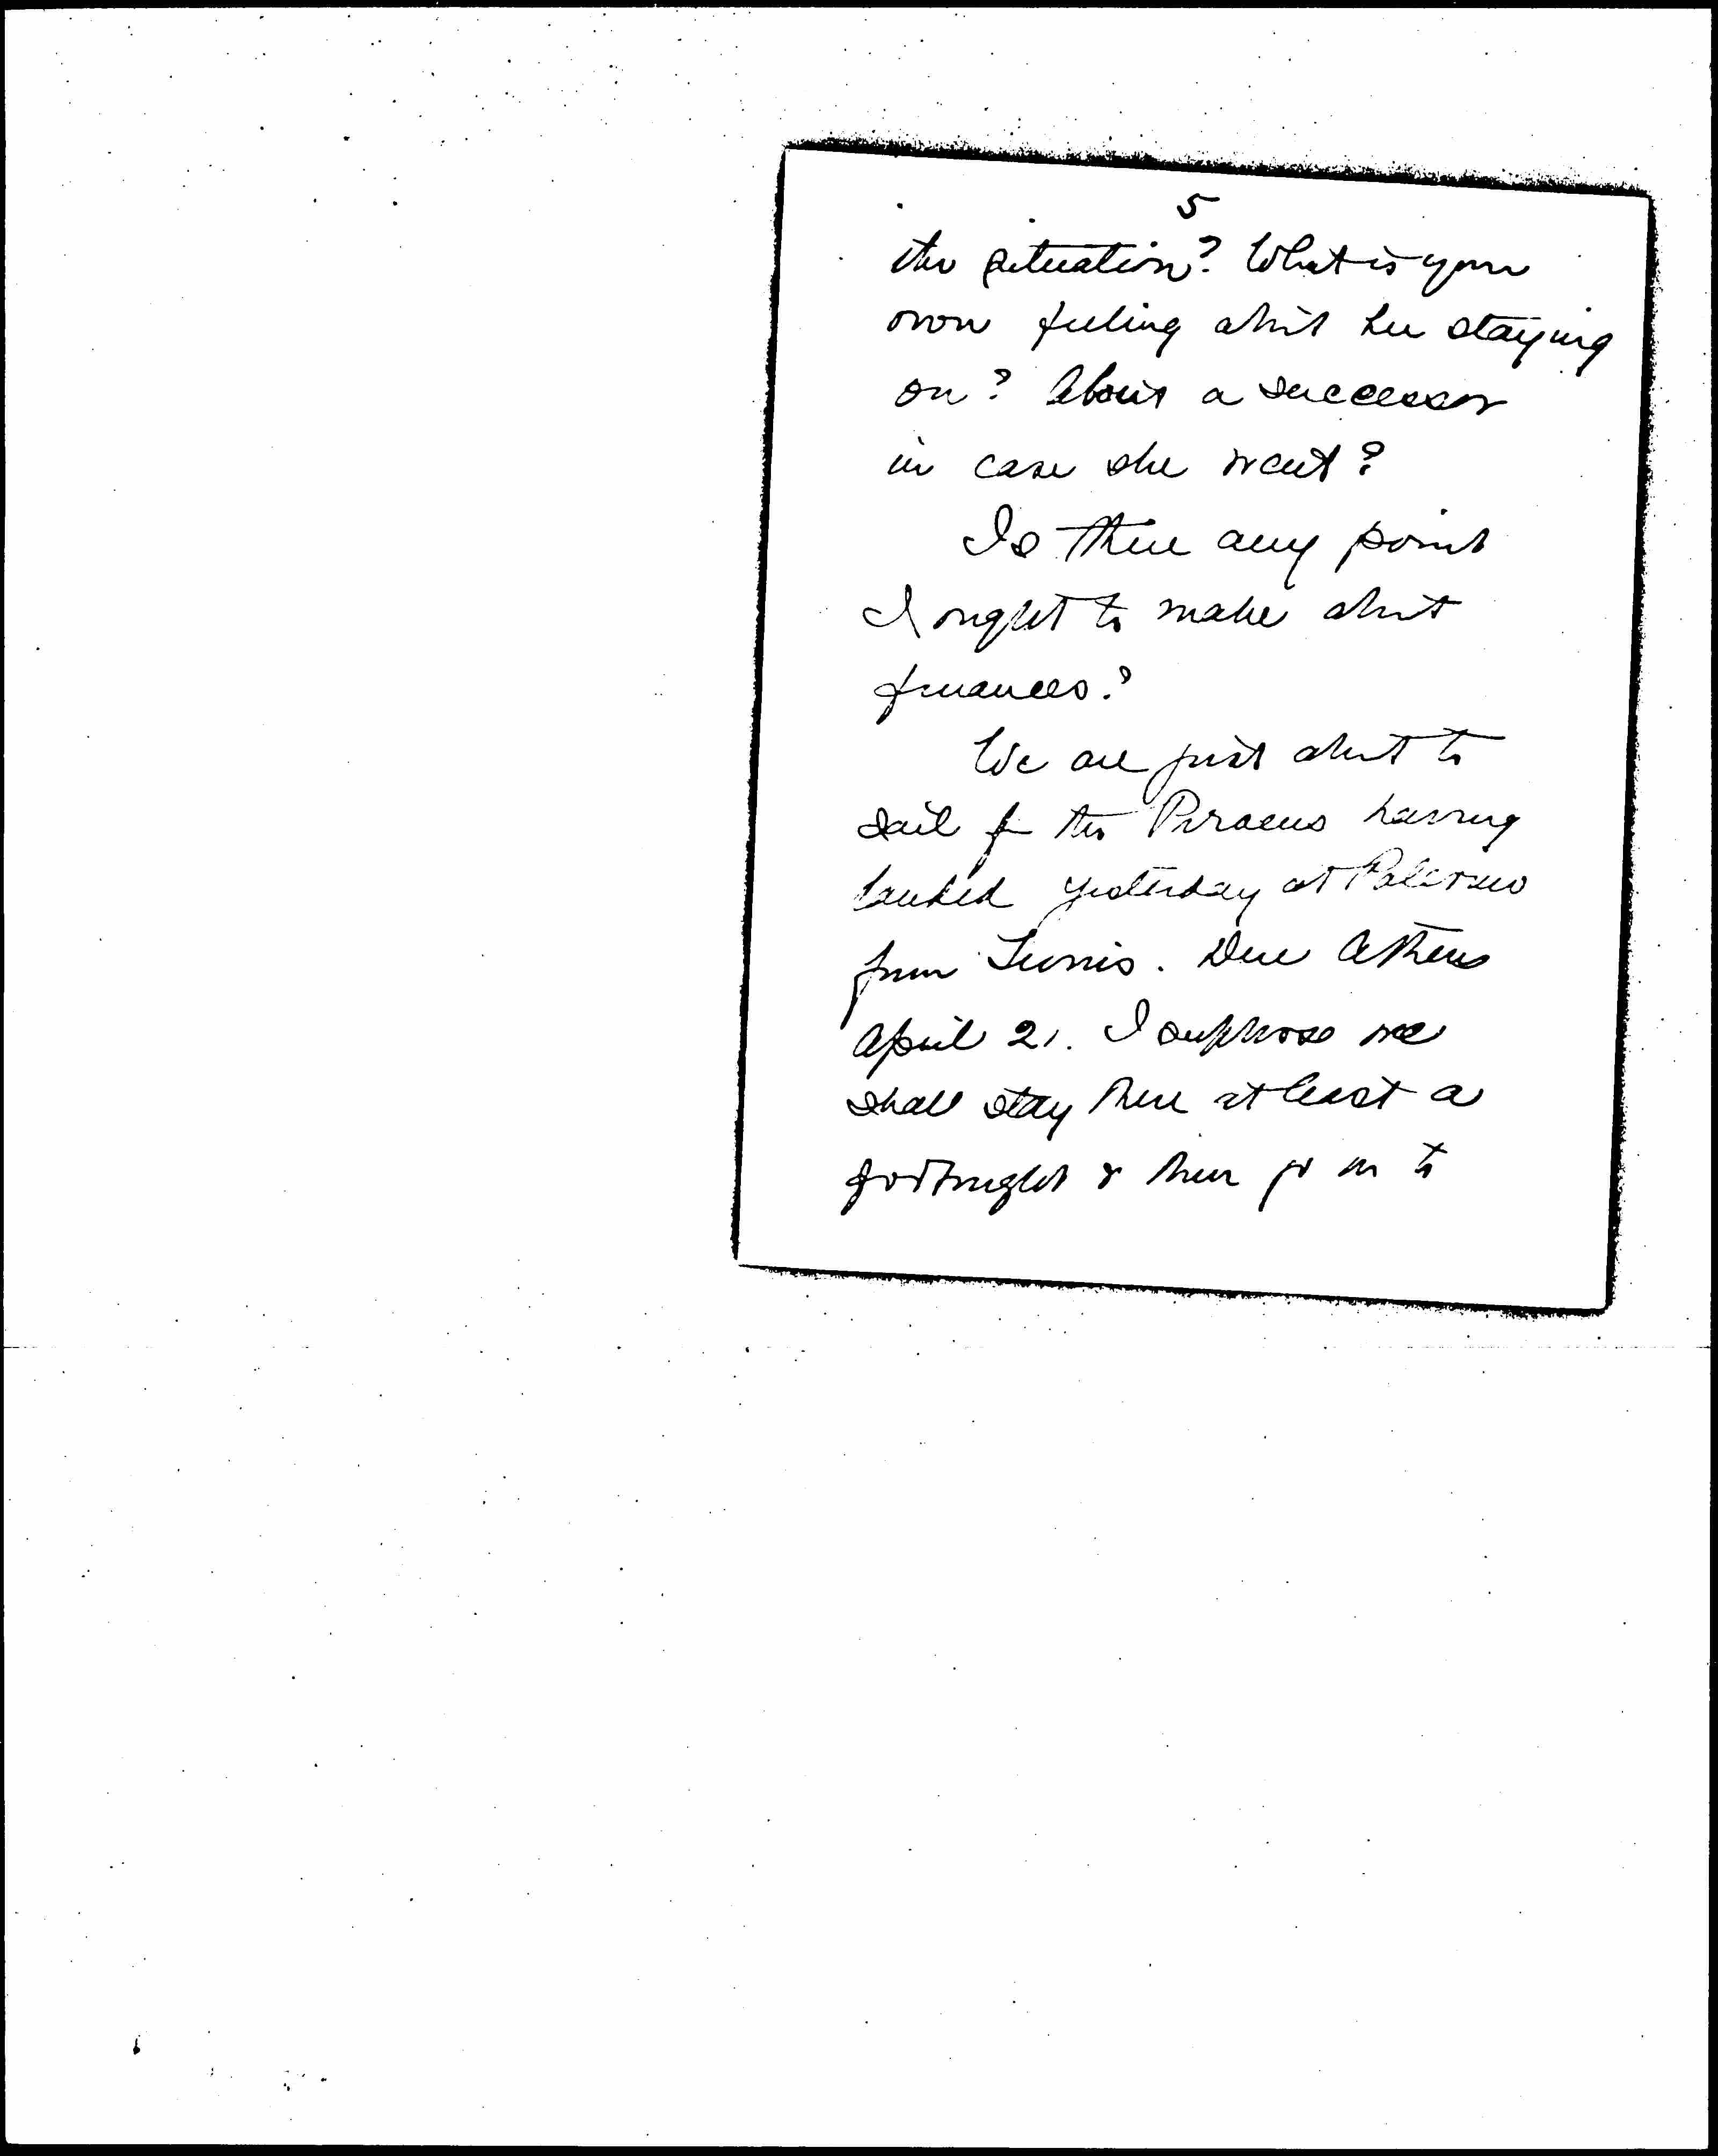 5
the situation? What is your
own feeling about her staying
on? About a successor
in case she went?
Is there any point
I ought to make about
finances?
We are just about to
sail for the Piraeus having
landed yesterday at Palermo
from Tunis. Due Athens
April 21. I suppose we
shall stay there at least a
fortnight & then go on to